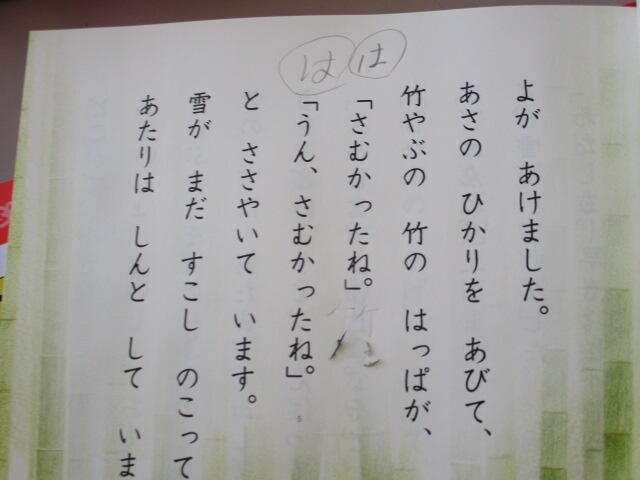 は は
よが あけました。
あさの ひかりを あびて、
竹やぶの 竹の はっぱが、
「さむかったね。」
「うん、さむかったね。」
と ささやいて います。
雪が まだ すこし のこって
あたりは しんと して いま